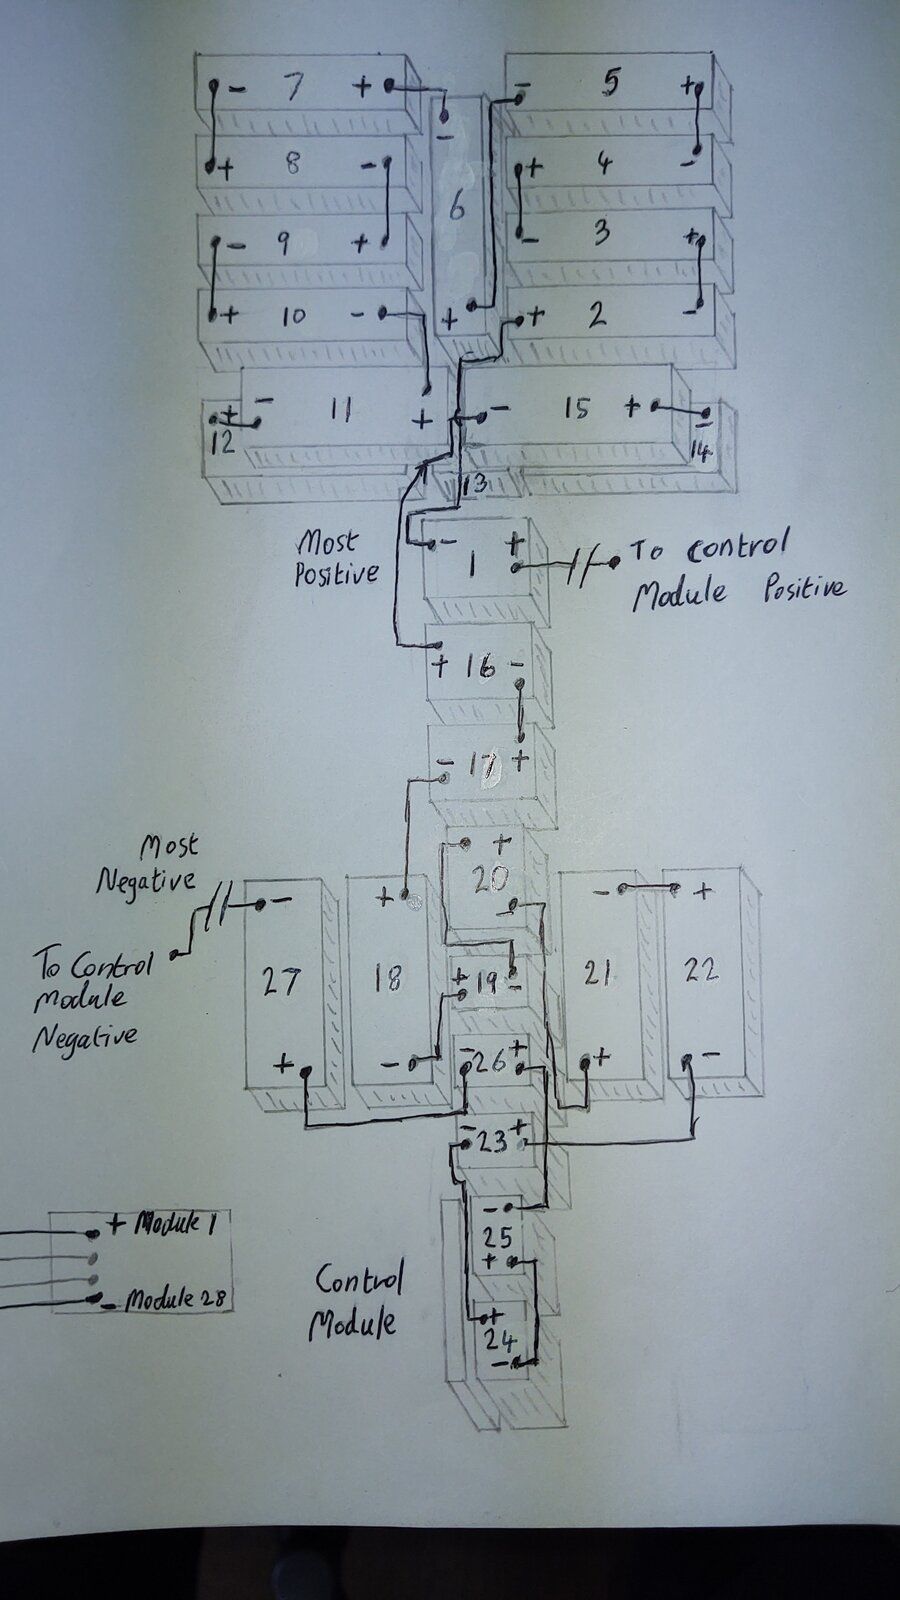 - 7 +
- 5 +
-
+ 8 -
+ 4 -
6
- 9 +
- 3 +
+ 10 -
+
+ 2 -
+ - 11 +
- 15 + -
12
14
13
Most
Positive
- 1 +
To control
Module Positive
+ 16 -
- 17 +
Most
Negative
+
20
-
- +
- +
To Control
Module
Negative
27
18
+ 19 -
21
22
+
-
- 26 +
+
-
- 23 +
-
25
+
+ Module 1
- Module 28
Control
Module
+
24
-